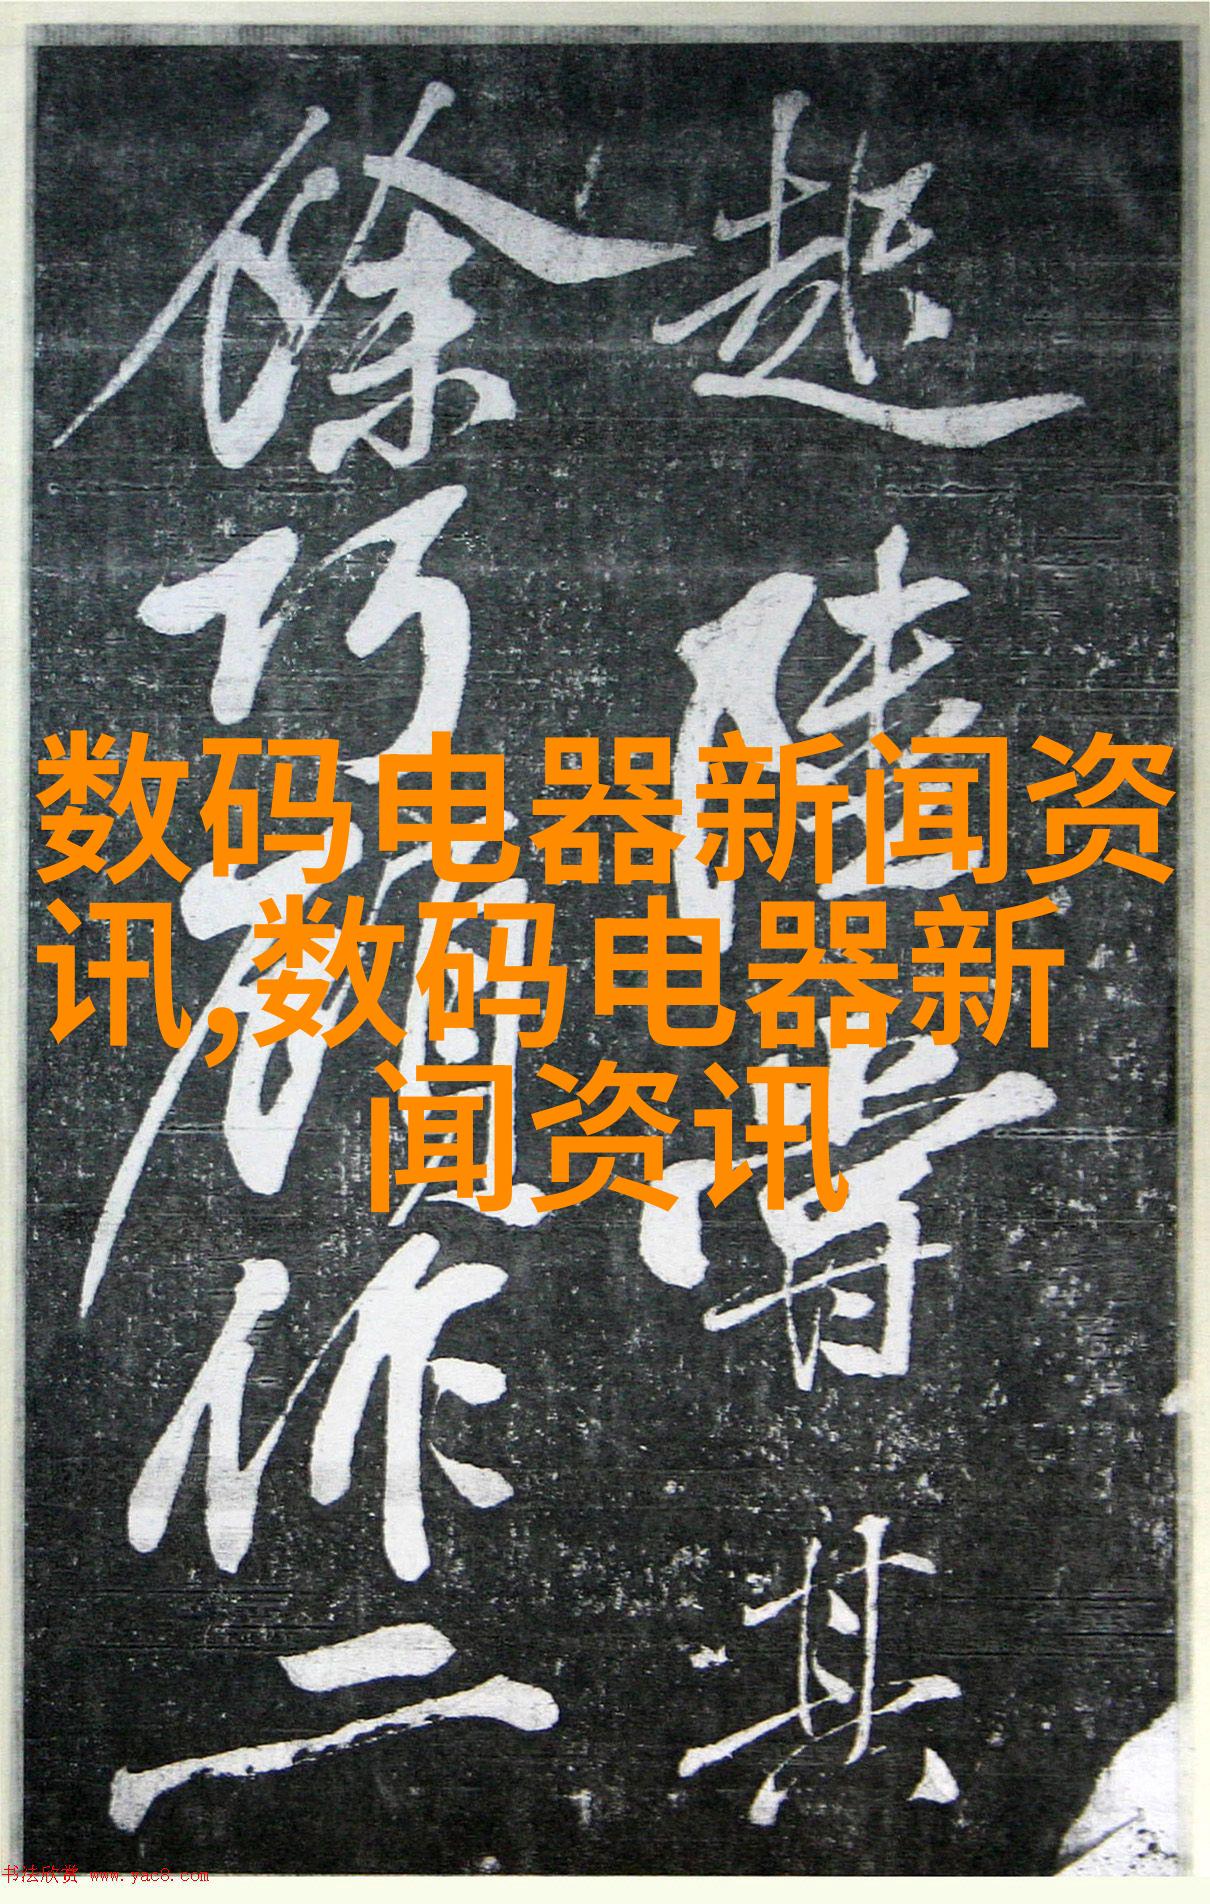 趑陸君其
餘巧頋作二
数码电器新闻资
讯,数码电器新
闻资讯
书法欣赏 www.yac8.com